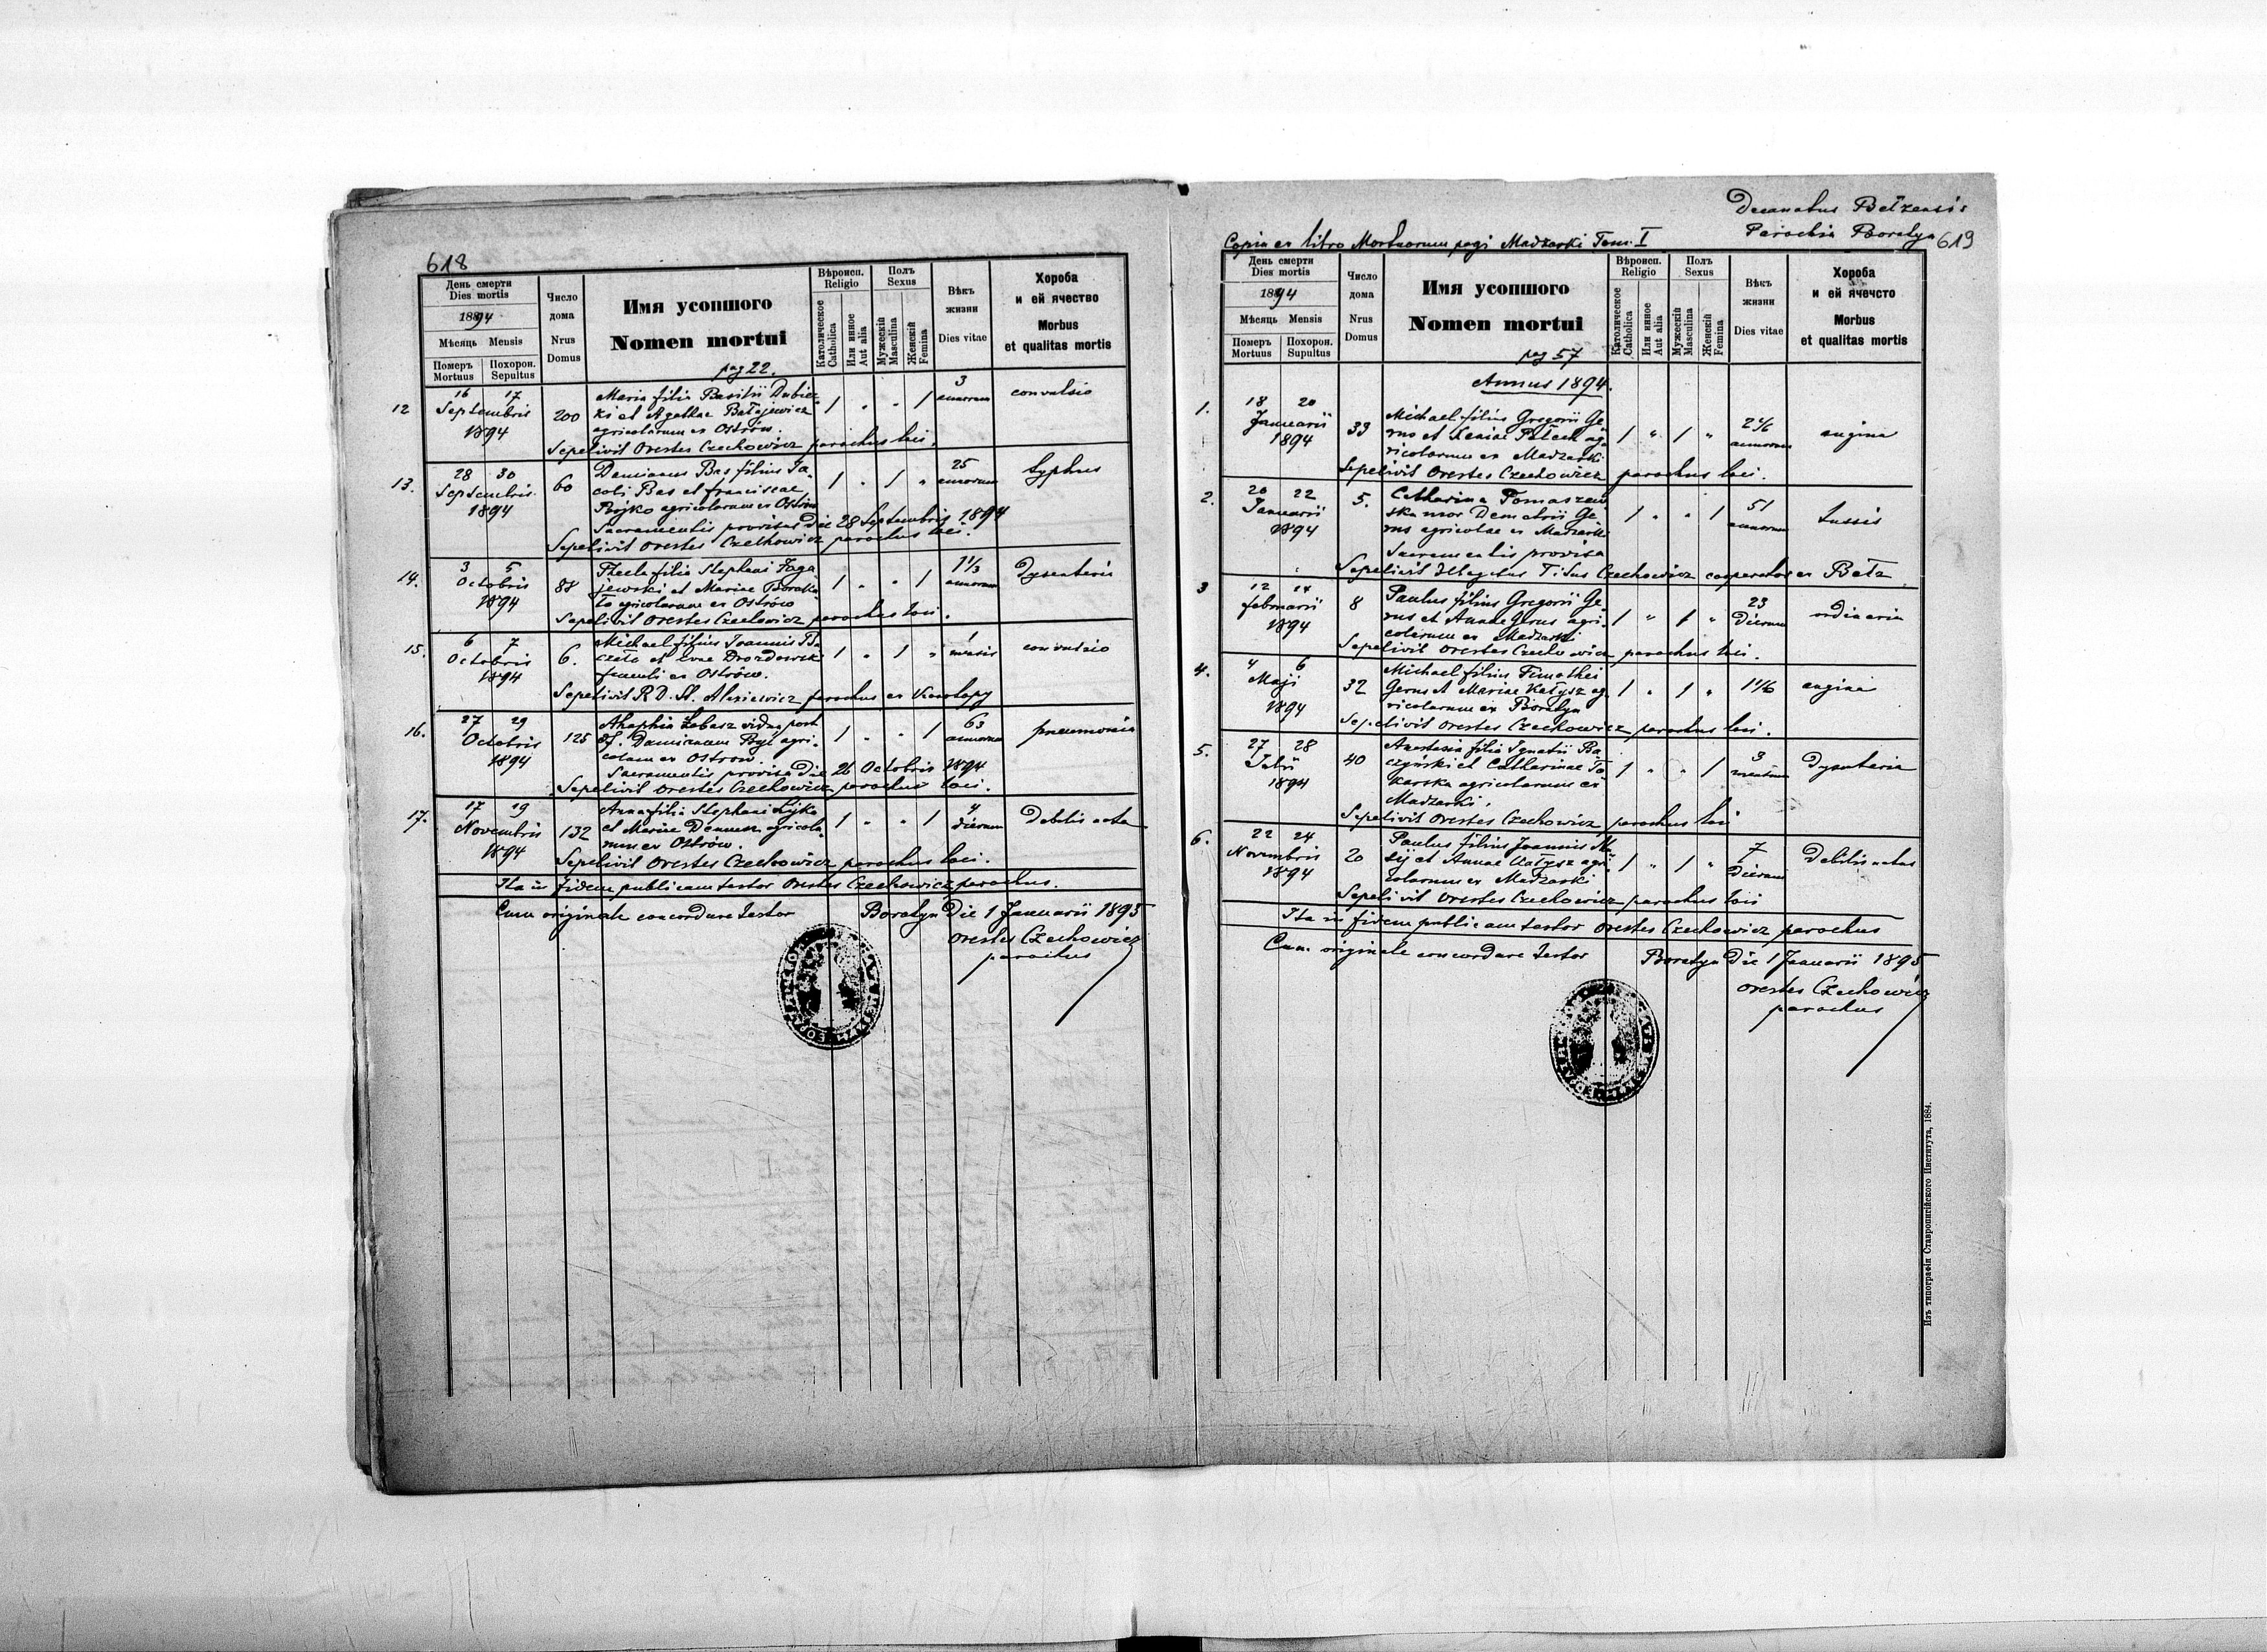 618
День смерти
Dies mortis
1894
Мѣсяць Mensis
Померъ Mortuus
Похорон. Sepultus
Число дома
Nrus Domus
Имя усопшого
Nomen mortui
pag 22.
Вѣроисп.
Religio
Католическое Catholica
Или инное Aut alia
Полъ
Sexus
Мужескій Masculina
Женскій Femina
Вѣкъ жизни
Dies vitae
Хороба
и ей ячество
Morbus
et qualitas mortis
12 16 17 Septembris 1894 200
Maria filia Basilii Dubiec
ki et Agathae Batajewicz
agricolarum ex Ostrów.
1 " " 1 3 annorum convulsio
Sepelivit Orestes Czechowicz parochus loci.
13. 28 30 Septembris 1894 60
Damianus Bas filius Ja
cobi Bas et Franciscae
Bojko agricolarum ex Ostrów
1 " 1 " 25 annorum typhus
Sacramentis provisus die 28 Septembris 1894
Sepelivit Orestes Czechowicz parochus loci.
14. 3 5 Octobris 1894 88
Thecla filia Stephani Zaga
jewski et Mariae
agricolarum ex Ostrów
1 " " 1 1 1/3 annorum Dysenteria
Sepelivit Orestes Czechowicz parochus loci.
15. 6 7 Octobris 1894 6.
Michael filius Joannis
et Evae Drozdowsk
ex Ostrów.
1 " 1 " 1 mensis convulsio
Sepelivit R. D. St. Alexiewicz parochus ex
16. 27 29 Octobris 1894 125
Ahaphia Zabasz vidua post
Damianum agri
colam ex Ostrów.
1 " " 1 63 annorum pneumonia
Sacramentis provisa die 26 Octobris 1894
Sepelivit Orestes Czechowicz parochus loci.
17. 17 19 Novembris 1894 132
Anna filia Stephani Łyka
et Mariae agricola
rum ex Ostrów.
1 " " 1 4 dierum Debilis nata
Sepelivit Orestes Czechowicz parochus loci.
Ita in fidem publicam testor Orestes Czechowicz parochus.
Cum originale concordare testor Boratyn Die 1 Januarii 1895
Orestes Czechowicz
parochus
Decanatus Bełzensis
Parochia Boratyn 619
Copia ex libro Mortuorum pagi Madzarki Tom. I
День смерти
Dies mortis
1894
Мѣсяць Mensis
Померъ Mortuus
Похорон. Supultus
Число дома
Nrus Domus
Имя усопшого
Nomen mortui
pag 57
Вѣроисп.
Religio
Католическое Catholica
Или инное Aut alia
Полъ
Sexus
Мужескій Masculina
Женскій Femina
Вѣкъ жизни
Dies vitae
Хороба
и ей ячечсто
Morbus
et qualitas mortis
Annus 1894.
1. 18 20 Januarii 1894 39
Michael filius Gregorii Ge
rus et Xeniae ag
ricolarum ex Madzarki
1 " 1 " annorum angina
Sepelivit Orestes Czechowicz parochus loci.
2. 20 22 Januarii 1894 5.
Catharina Tomaszew
ska uxor Demetrii Ge
rus agricolae ex Madzarki
Sacramentis provisa
1 " " 1 51 annorum tussis
Sepelivit Titus Czechowicz cooperator ex Bełz
3 12 14 Februarii 1894 8
Paulus filius Gregorii Ge
rus et Annae Gerus agri
colarum ex Madzarki
1 " 1 " 23 Dierum ordinaria
Sepelivit Orestes Czechowicz parochus loci.
4. 4 6 Maji 1894 32
Michael filius Timothei
Gerus et Mariae Katysz ag
ricolarum ex Boratyn
1 " 1 " angina
Sepelivit Orestes Czechowicz parochus loci.
5. 27 28 Julii 1894 40
Anastasia filia Ignatii Ba
czyński et Catharinae To
karska agricolarum ex
Madzarki.
1 " " 1 3 mensium Dysenteria
Sepelivit Orestes Czechowicz parochus loci
6. 22 24 Novembris 1894 20
Paulus filius Joannis Mu
sij et Annae Katysz agri
colarum ex Madzarki
1 " 1 " 7 Dierum Debilis natus
Sepelivit Orestes Czechowicz parochus loci
Ita in fidem publicam testor Orestes Czechowicz parochus
Cum originale concordare testor Boratyn Die 1 Januarii 1895
Orestes Czechowicz
parochus
Изъ типографіи Ставропигійского Института, 1884.